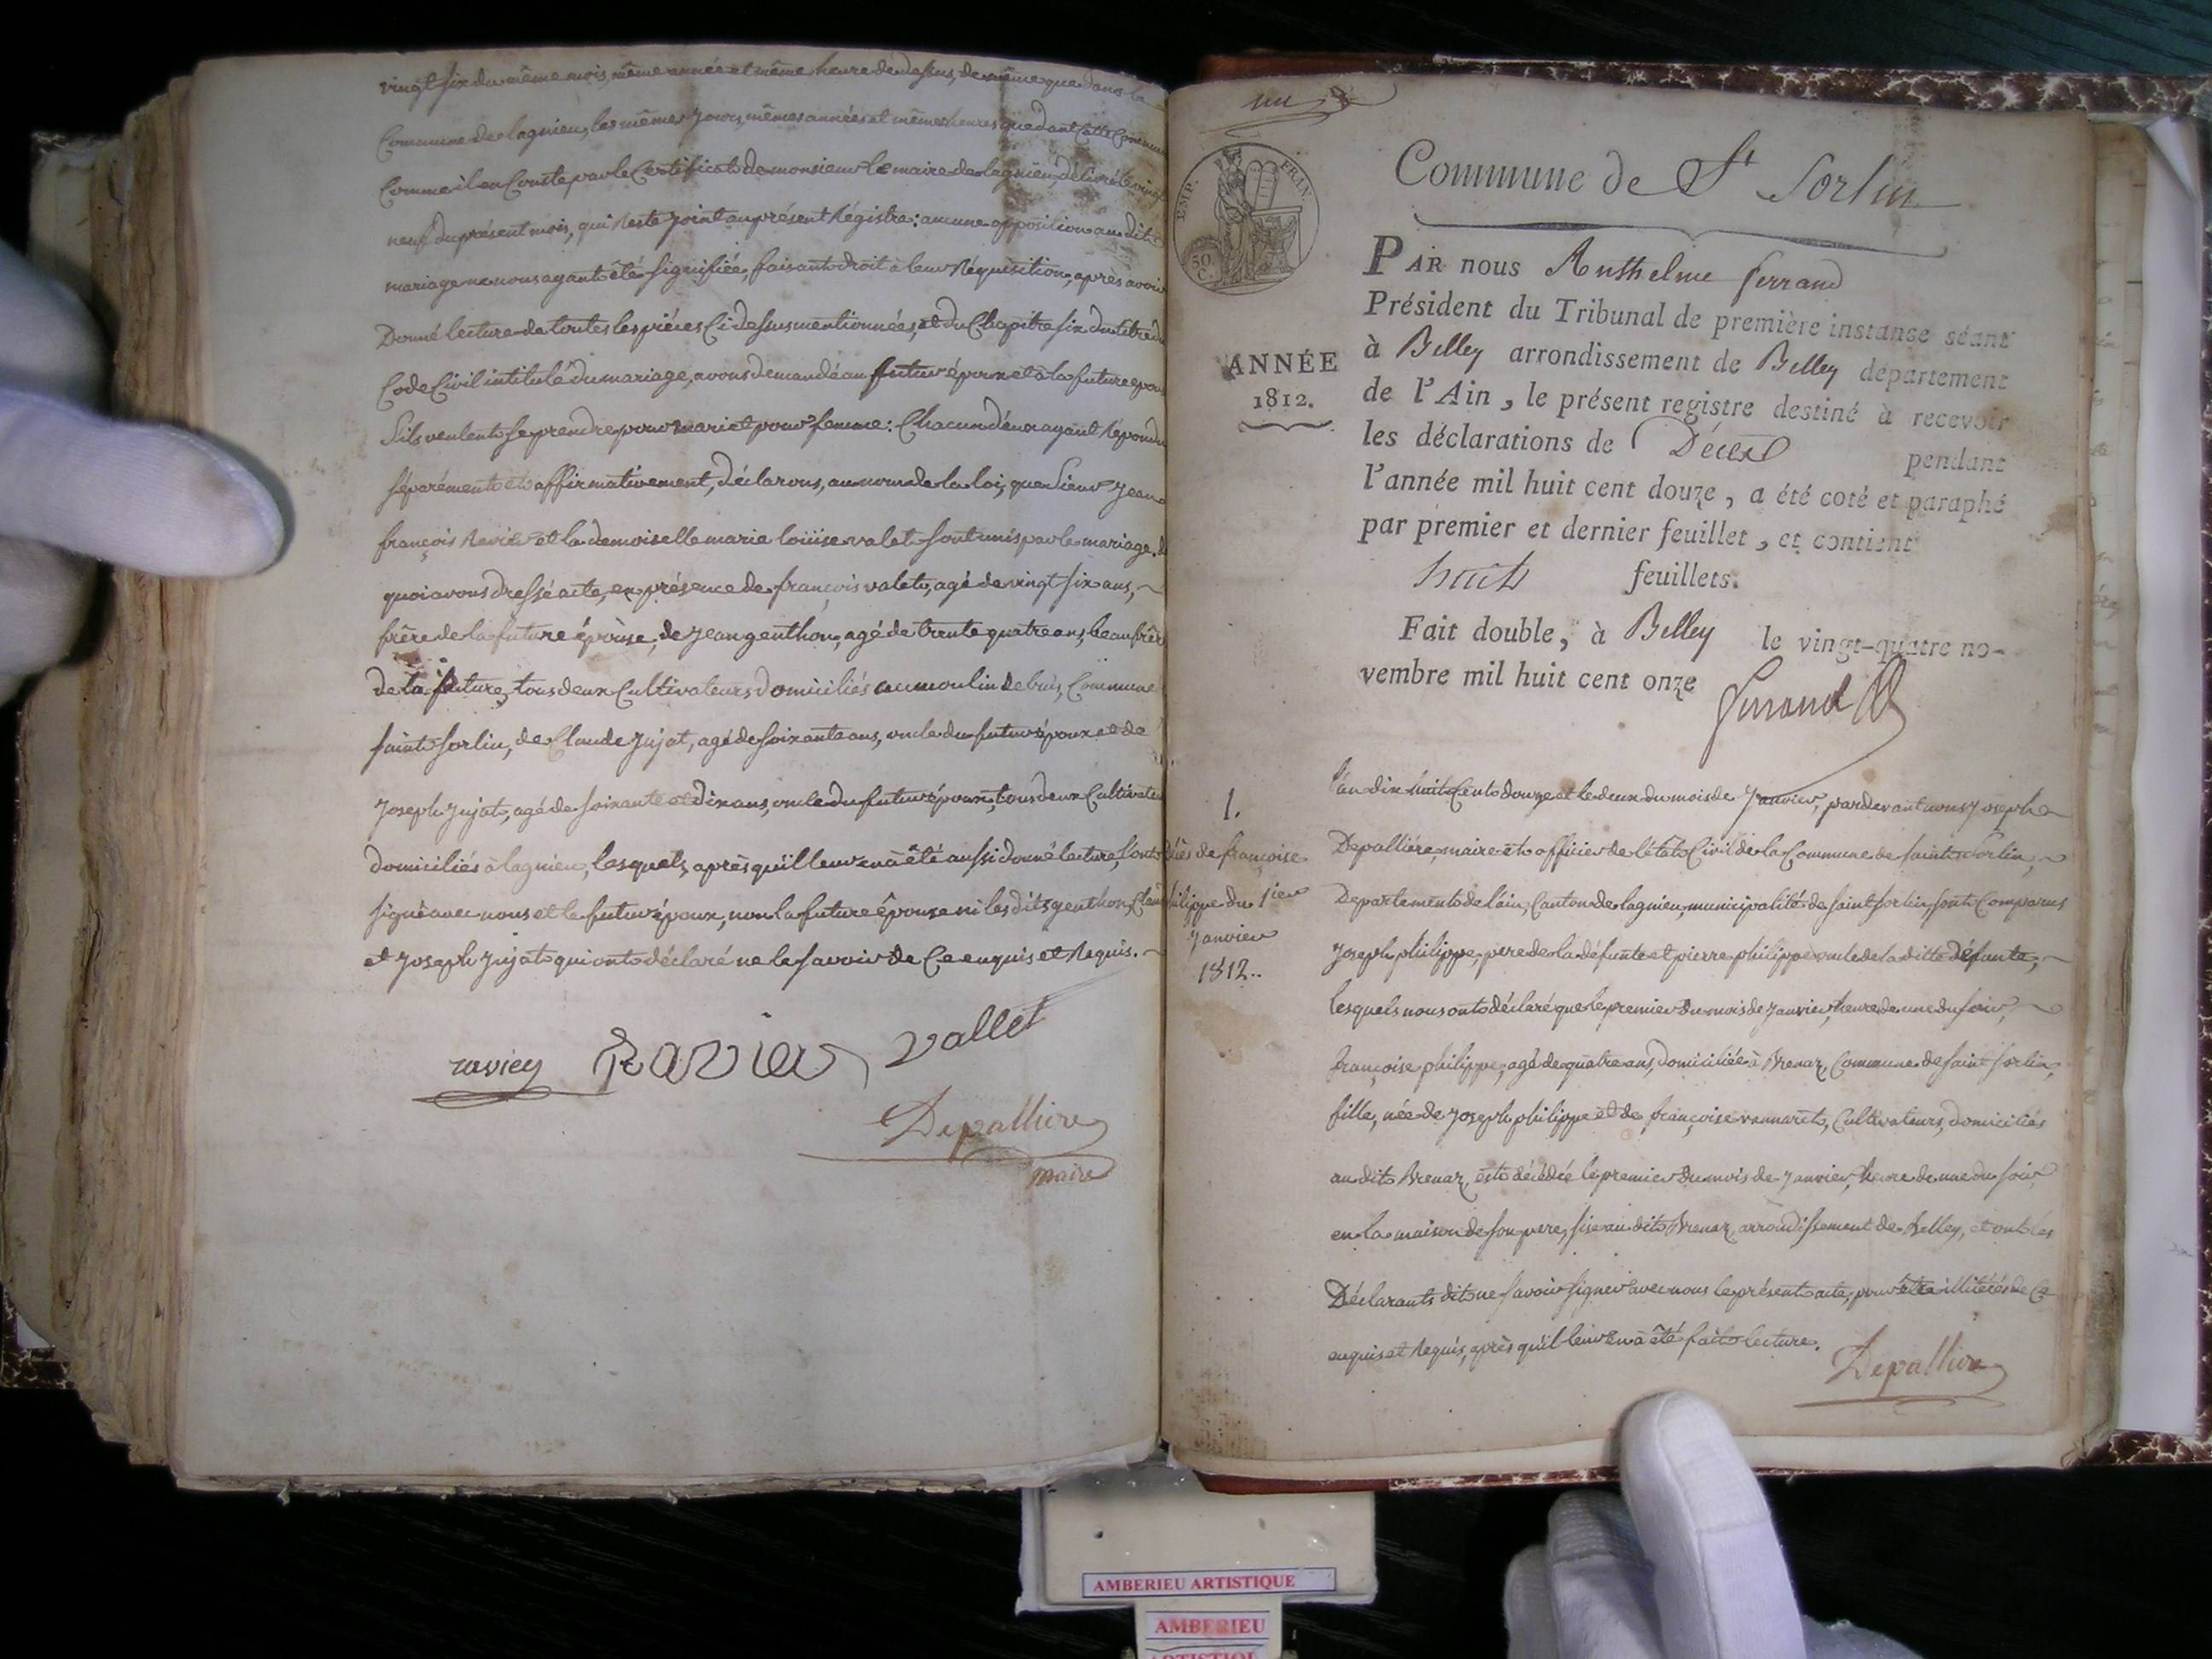 vingt six du même mois, même année et même heure de dessus, de même que dans la
Commune de lagnieu, les mêmes jours, mêmes années et mêmes heures que dant cette Commune
Comme il en Conste par le Certificat de monsieur le maire de lagnieu, délivré le vingt
neuf du présent mois, qui Reste joint au présent Régistre: aucune opposition au dit
mariage ne nous ayant été signifiée, faisant droit à leur Réquisition, après avoir
Donné lecture de toutes les pièces Ci dessus mentionnées, et du Chapitre six du titre du
Code Civil intitulé du mariage, avons demandé au futur époux et à la future epouse
S'ils veulent se prendre pour mari et pour femme: Chacun d'eux ayant Répondu
séparément et affirmativement, déclarons, au nom de la loi, que Sieur jean
françois Ravier et la demoiselle marie loüise valet sont unis par le mariage. de
quoi avons dressé acte, en présence de françois valet, agé de vingt six ans,
frère de la future épouse, de jean genthon, agé de trente quatre ans, beaufrère
de la future, tous deux Cultivateurs domiciliés au moulin de buis, Commune
saint Sorlin, de Claude jujat, agé de soixante ans, oncle du futur époux et de
joseph jujat, agé de soixante et dix ans, oncle du futur époux, tous deux Cultivateurs
domiciliés à lagnieu, lesquels, après qu'il leur en à été aussi donné lecture, sont
signé avec nous et le futur époux, non la future épouse ni les dits genthon, Claude
et joseph jujat qui ont déclaré ne le savoir de Ce enquis et Requis.
ravier Ravier vallet
Depalliere
maire
un
EMP. FRAN.
50 C.
Commune de St Sorlin
PAR nous Anthelme ferrand
Président du Tribunal de première instanse séant
à Belley arrondissement de Belley département
ANNÉE
1812.
de l'Ain, le présent registre destiné à recevoir
les déclarations de Décès pendant
l'année mil huit cent douze, a été coté et paraphé
par premier et dernier feuillet, et contient
huit feuillets.
Fait double, à Belley le vingt-quatre no-
vembre mil huit cent onze
ferrand
1.
Décès de françoise
philippe du 1ier
janvier
1812..
l'an dix huit Cent douze et le deux du mois de janvier, pardevant nous joseph
Depallière, maire et officier de l'état Civil de la Commune de saint Sorlin,
Departement de l'ain, Canton de lagnieu, municipalité de saint sorlin, sont Comparus
joseph philippe, pere de la défunte et pierre philippe oncle de la ditte défunte,
lesquels nous ont déclaré que le premier du mois de janvier, heure de une du soir,
françoise philippe, agé de quatre ans, domiciliée à Brenaz, Commune de saint sorlin,
fille, née de joseph philippe et de françoise vannaret, Cultivateurs, domiciliés
au dit Brenaz, est décédée le premier du mois de janvier, heure de une du soir
en la maison de son pere, sise au dit Brenaz, arrondissement de belley, et ont les
Déclarants dit ne savoir signer avec nous le présent acte, pour être illitérés de Ce
enquis et Requis, après qu'il leur en à été fait lecture.
Depalliere
AMBERIEU ARTISTIQUE
AMBERIEU
ARTISTIQUE